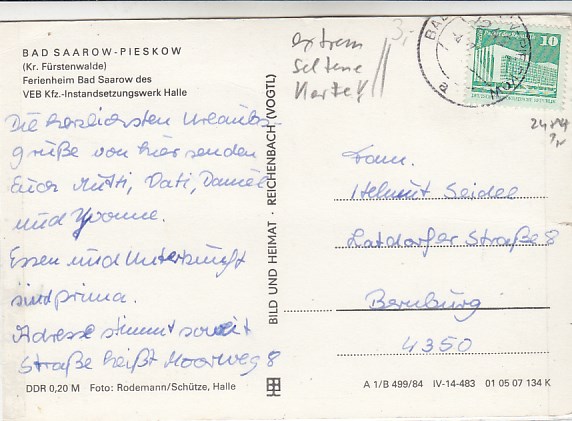 BAD SAAROW-PIESKOW
(Kr. Fürstenwalde)
Ferienheim Bad Saarow des
VEB Kfz.-Instandsetzungswerk Halle
extrem
seltene
Karte!!
3,-
BAD SAAROW
10
2484
Die herzlichsten Urlaubs-
grüße von hier senden
Euch Mutti, Vati, Daniel
und Yvonne.
Essen und Unterkunft
sind prima.
Adresse stimmt soweit
Straße heißt Moorweg 8
BILD UND HEIMAT · REICHENBACH (VOGTL)
Fam.
Helmut Seidel
Latdorfer Straße 8
Bernburg
4350
DDR 0,20 M Foto: Rodemann/Schütze, Halle
A 1/B 499/84 IV-14-483 01 05 07 134 K